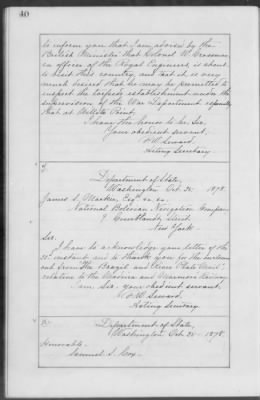 40
to inform you that I am advised by the
British Minister that Colonel W. Crossman
an officer of the Royal Engineers, is about
to visit this country, and that it is very
much desired that he may be permitted to
inspect the torpedo establishment under the
supervision of the War Department especially
that at Willets Point.
I have the honor to be, Sir,
Your obedient servant,
F. W. Seward.
Acting Secretary
Department of State,
Washington Oct. 25 1878.
James S. Mackie, Esq.
National Bolivian Navigation Company
Courtlandt Street
New York
Sir.
I have to acknowledge your letter of the
instant and to thank you for the
sent from the Brazil and River Plate Mail,
relative to the Madeira and Mamoré Railway.
I am Sir, your obedient servant,
F. W. Seward.
Acting Secretary
Department of State,
Washington Oct. 25 1878.
Honorable
Samuel S. Cox.